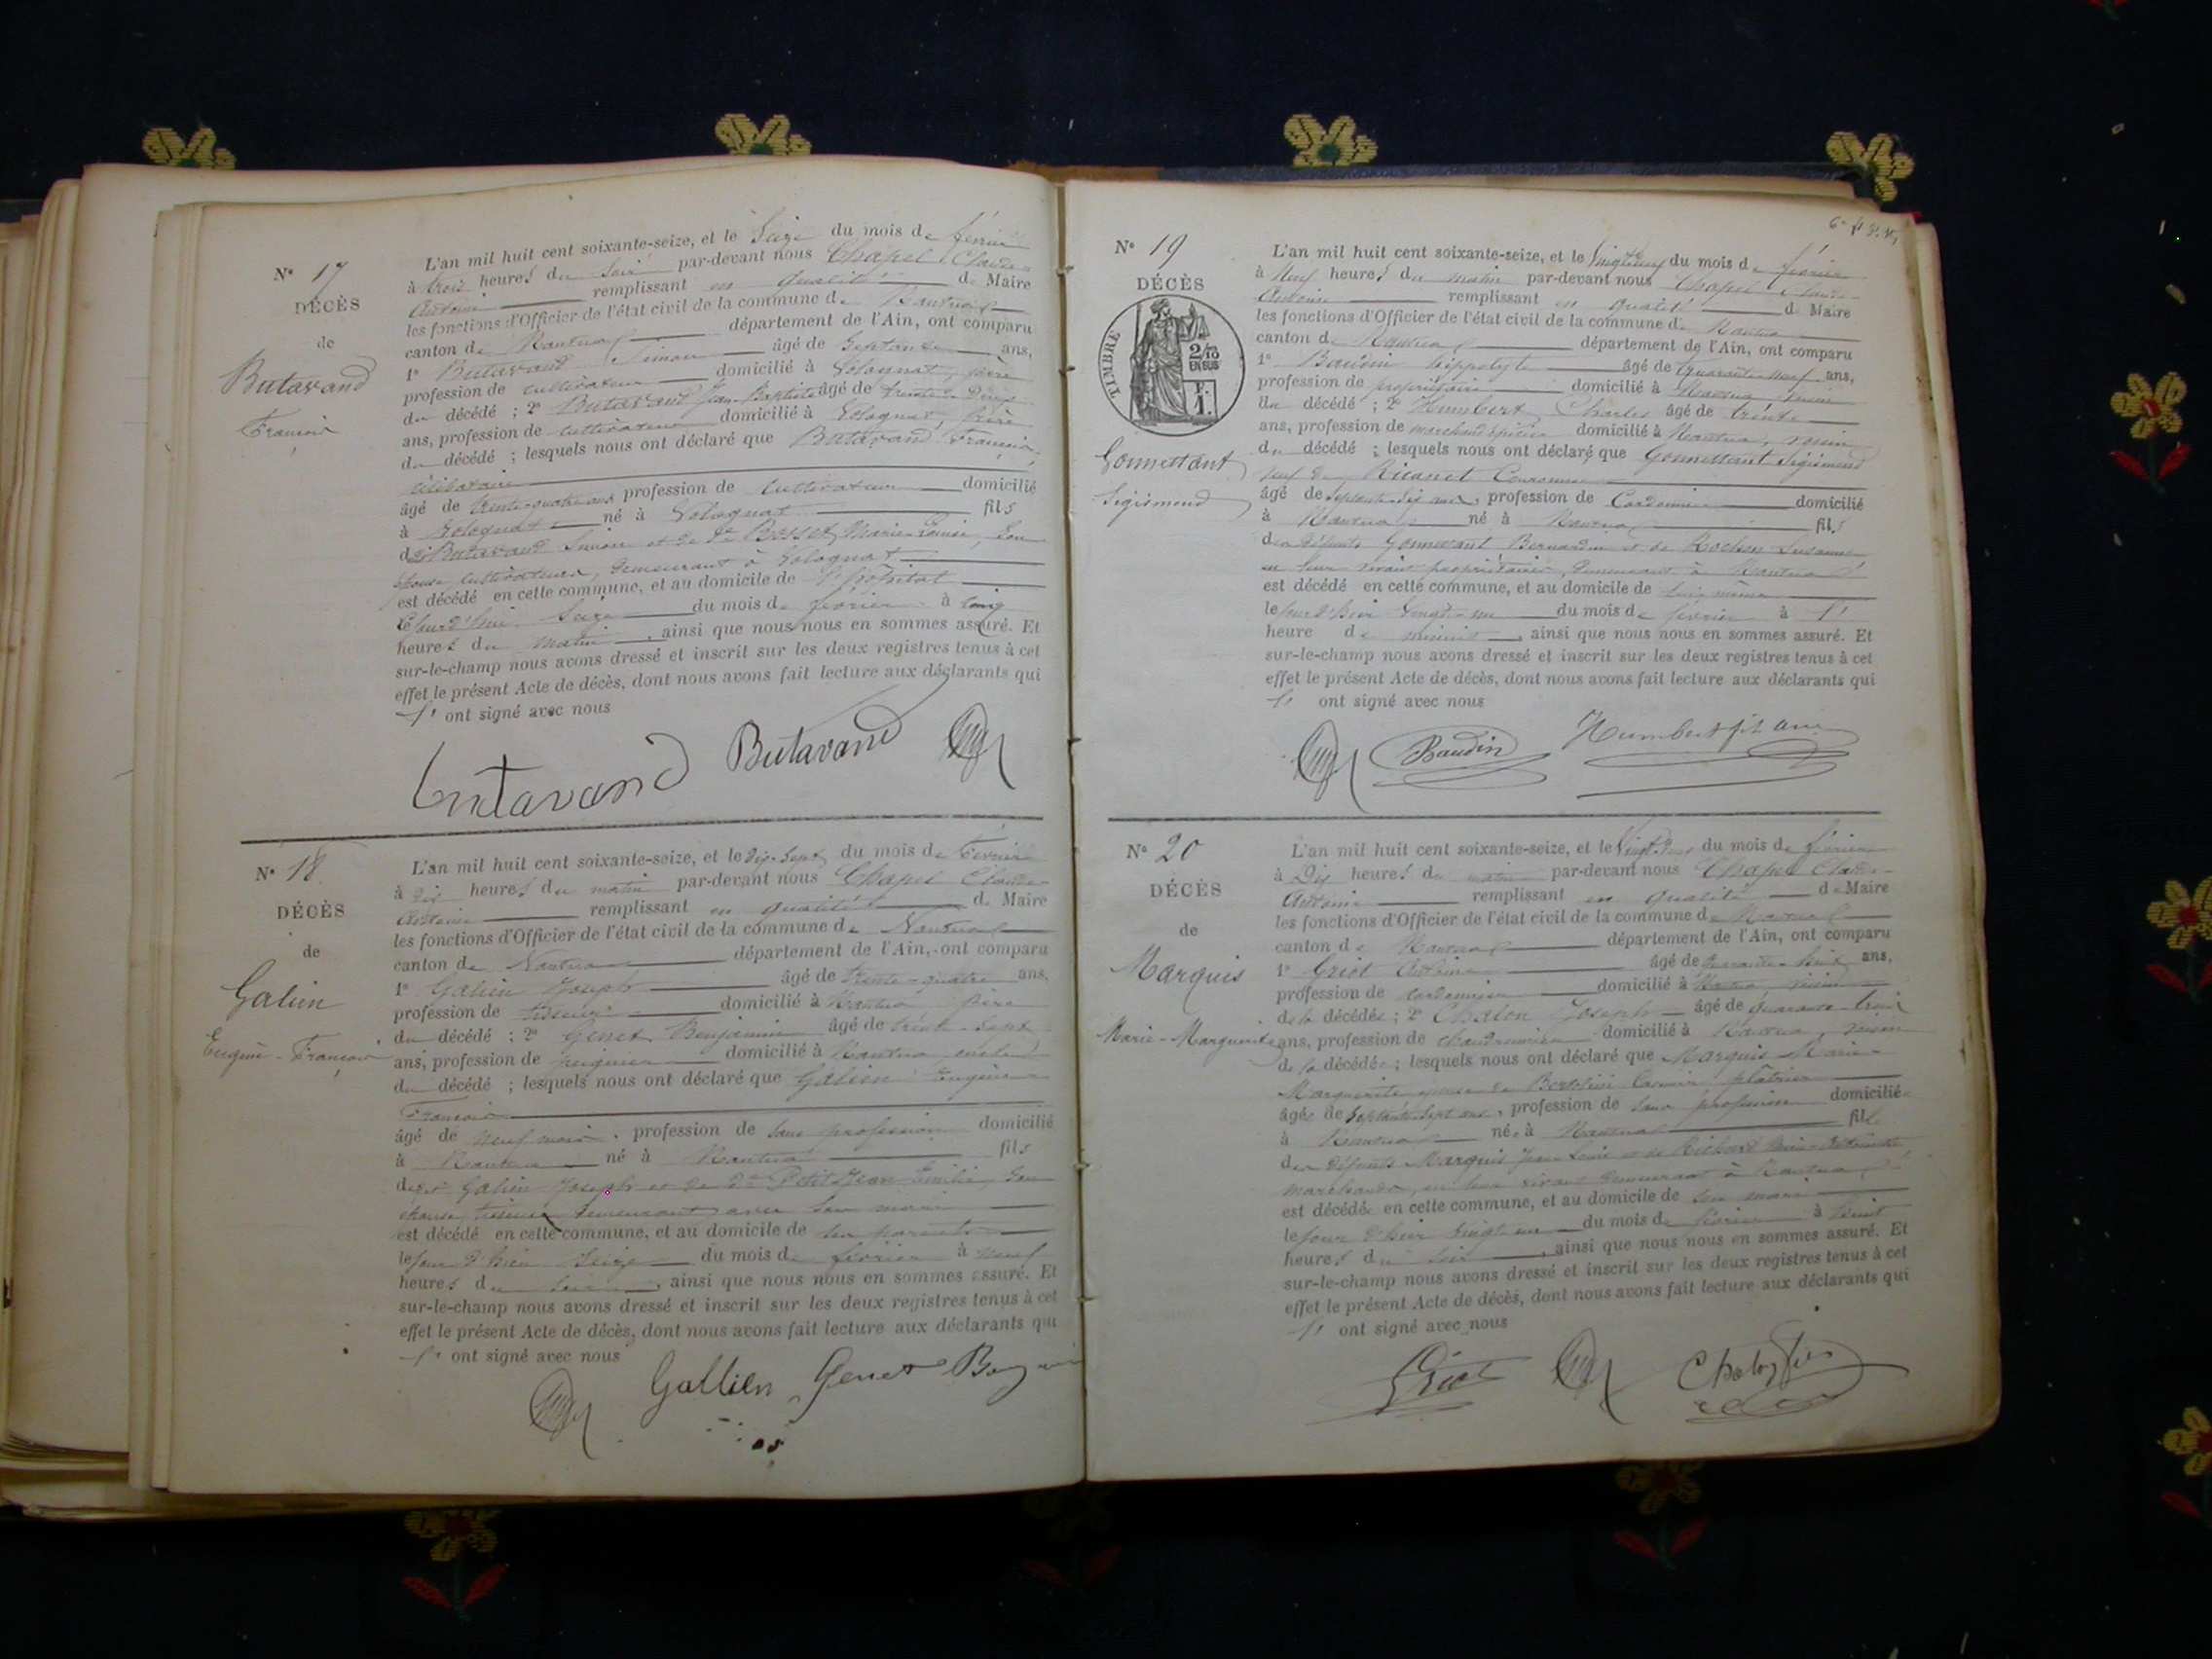 N° 17
DÉCÈS
de
Butavand
François
L'an mil huit cent soixante-seize, et le Seize du mois de février
à trois heures du soir par-devant nous Chapel Claude-
Antoine remplissant en qualité de Maire
les fonctions d'Officier de l'état civil de la commune de Nantua
canton de Nantua département de l'Ain, ont comparu
1° Butavand Simon âgé de Septante ans,
profession de cultivateur domicilié à père
du décédé ; 2° Butavand Jean-Baptiste âgé de trente-Deux
ans, profession de cultivateur domicilié à frère
du décédé ; lesquels nous ont déclaré que Butavand François,
célibataire
âgé de trente-quatre ans profession de Cultivateur domicilié
à né à fils
de Butavand Simon et de Marie-Louise, Son
épouse cultivateurs, demeurant à
est décédé en cette commune, et au domicile de l'hôpital
le jourd'hui Seize du mois de février à cinq
heures du matin, ainsi que nous nous en sommes assuré. Et
sur-le-champ nous avons dressé et inscrit sur les deux registres tenus à cet
effet le présent Acte de décès, dont nous avons fait lecture aux déclarants qui
ont signé avec nous
Butavand Butavand
N° 18
DÉCÈS
de
Galien
Eugène-François
L'an mil huit cent soixante-seize, et le Dix-Sept du mois de Février
à Dix heures du matin par-devant nous Chapel Claude-
Antoine remplissant en qualité de Maire
les fonctions d'Officier de l'état civil de la commune de Nantua
canton de Nantua département de l'Ain, ont comparu
1° Galien Joseph âgé de trente-quatre ans,
profession de domicilié à Nantua, père
du décédé ; 2° Genet Benjamin âgé de trente-Sept
ans, profession de peignier domicilié à Nantua oncle
du décédé ; lesquels nous ont déclaré que Galien Eugène
François
âgé de neuf mois, profession de Sans profession domicilié
à Nantua né à Nantua fils
de Galien Joseph et de Petit Jean Emilie Son
épouse demeurant avec Son mari
est décédé en cette commune, et au domicile de Ses parents
le jour d'hier Seize du mois de février à neuf
heures du soir, ainsi que nous nous en sommes assuré. Et
sur-le-champ nous avons dressé et inscrit sur les deux registres tenus à cet
effet le présent Acte de décès, dont nous avons fait lecture aux déclarants qui
ont signé avec nous
Gallien Genet
N° 19
DÉCÈS
TIMBRE
2/10
EN SUS
F.
1.
Gonnettant
Sigismond
L'an mil huit cent soixante-seize, et le Vingt-Deux du mois de février
à Neuf heures du matin par-devant nous Chapel Claude-
Antoine remplissant en qualité de Maire
les fonctions d'Officier de l'état civil de la commune de Nantua
canton de Nantua département de l'Ain, ont comparu
1° Baudin hippolyte âgé de Quarante-neuf ans,
profession de propriétaire domicilié à Nantua voisin
du décédé ; 2° Humbert Charles âgé de trente
ans, profession de marchand épicier domicilié à Nantua, voisin
du décédé ; lesquels nous ont déclaré que Gonnettant Sigismond
veuf de Ricanet
âgé de Septante-Dix ans, profession de Cordonnier domicilié
à Nantua né à Nantua fils
des défunts Gonnettant Bernardin et de Rochon Susanne
en leur vivant propriétaires, Demeurant à Nantua
est décédé en cette commune, et au domicile de lui-même
le jour d'hier Vingt-un du mois de février à
heure de minuit, ainsi que nous nous en sommes assuré. Et
sur-le-champ nous avons dressé et inscrit sur les deux registres tenus à cet
effet le présent Acte de décès, dont nous avons fait lecture aux déclarants qui
ont signé avec nous
Baudin Humbert fils
N° 20
DÉCÈS
de
Marquis
Marie-Marguerite
L'an mil huit cent soixante-seize, et le Vingt-Deux du mois de février
à Dix heures du matin par-devant nous Chapel Claude-
Antoine remplissant en qualité de Maire
les fonctions d'Officier de l'état civil de la commune de Nantua
canton de Nantua département de l'Ain, ont comparu
1° Griot Antoine âgé de ans,
profession de cordonnier domicilié à Nantua, voisin
de la décédée ; 2° Chalon Joseph âgé de quarante-trois
ans, profession de chaudronnier domicilié à Nantua, voisin
de la décédée ; lesquels nous ont déclaré que Marquis Marie-
Marguerite épouse de plâtrier
âgée de Septante-Sept ans, profession de Sans profession domiciliée
à Nantua née à Nantua fille
des défunts Marquis Jean Louis et de Richard
marchands, en leur vivant Demeurant à Nantua
est décédée en cette commune, et au domicile de Son mari
le jour d'hier vingt-un du mois de février à huit
heures du soir, ainsi que nous nous en sommes assuré. Et
sur-le-champ nous avons dressé et inscrit sur les deux registres tenus à cet
effet le présent Acte de décès, dont nous avons fait lecture aux déclarants qui
ont signé avec nous
Griot